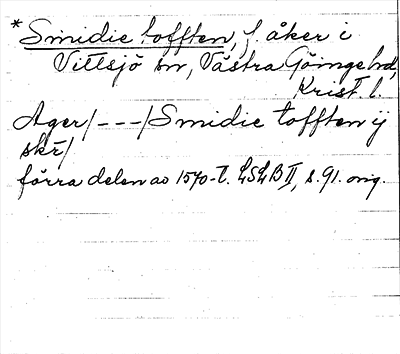 *Smidie tofften, f. åker i
Vittsjö sn, Västra Göinge hd,
Krist. l.
Ager/---/Smidie tofften ij
skr/
förra delen av 1570-t. LSLB II, s. 91. orig.